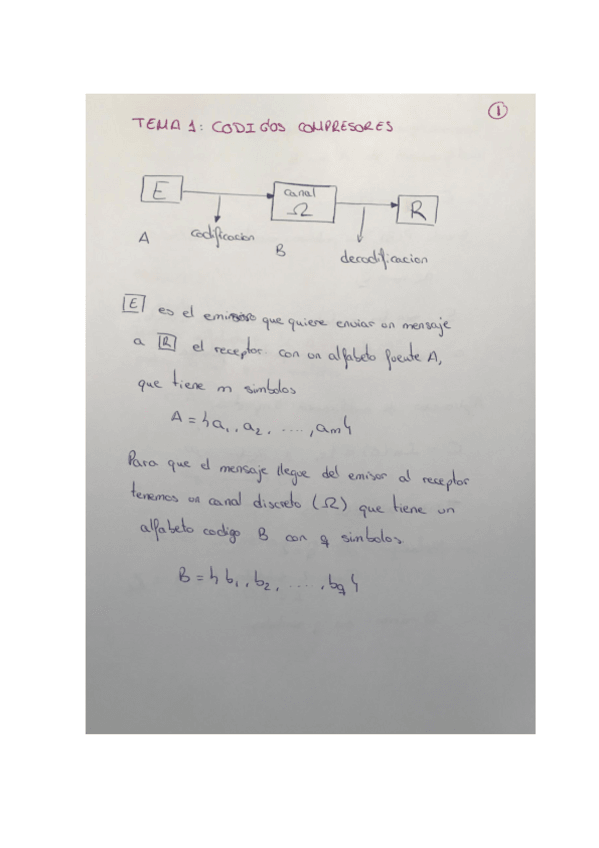 1
TEMA 1: CODIGOS COMPRESORES
E
canal
Ω
R
A
codificacion
B
decodificacion
E es el emisor que quiere enviar un mensaje
a R el receptor. con un alfabeto fuente A,
que tiene m simbolos
A = {a₁, a₂, ...., aₘ}
Para que el mensaje llegue del emisor al receptor
tenemos un canal discreto (Ω) que tiene un
alfabeto codigo B con q simbolos.
B = {b₁, b₂, ...., b_q}